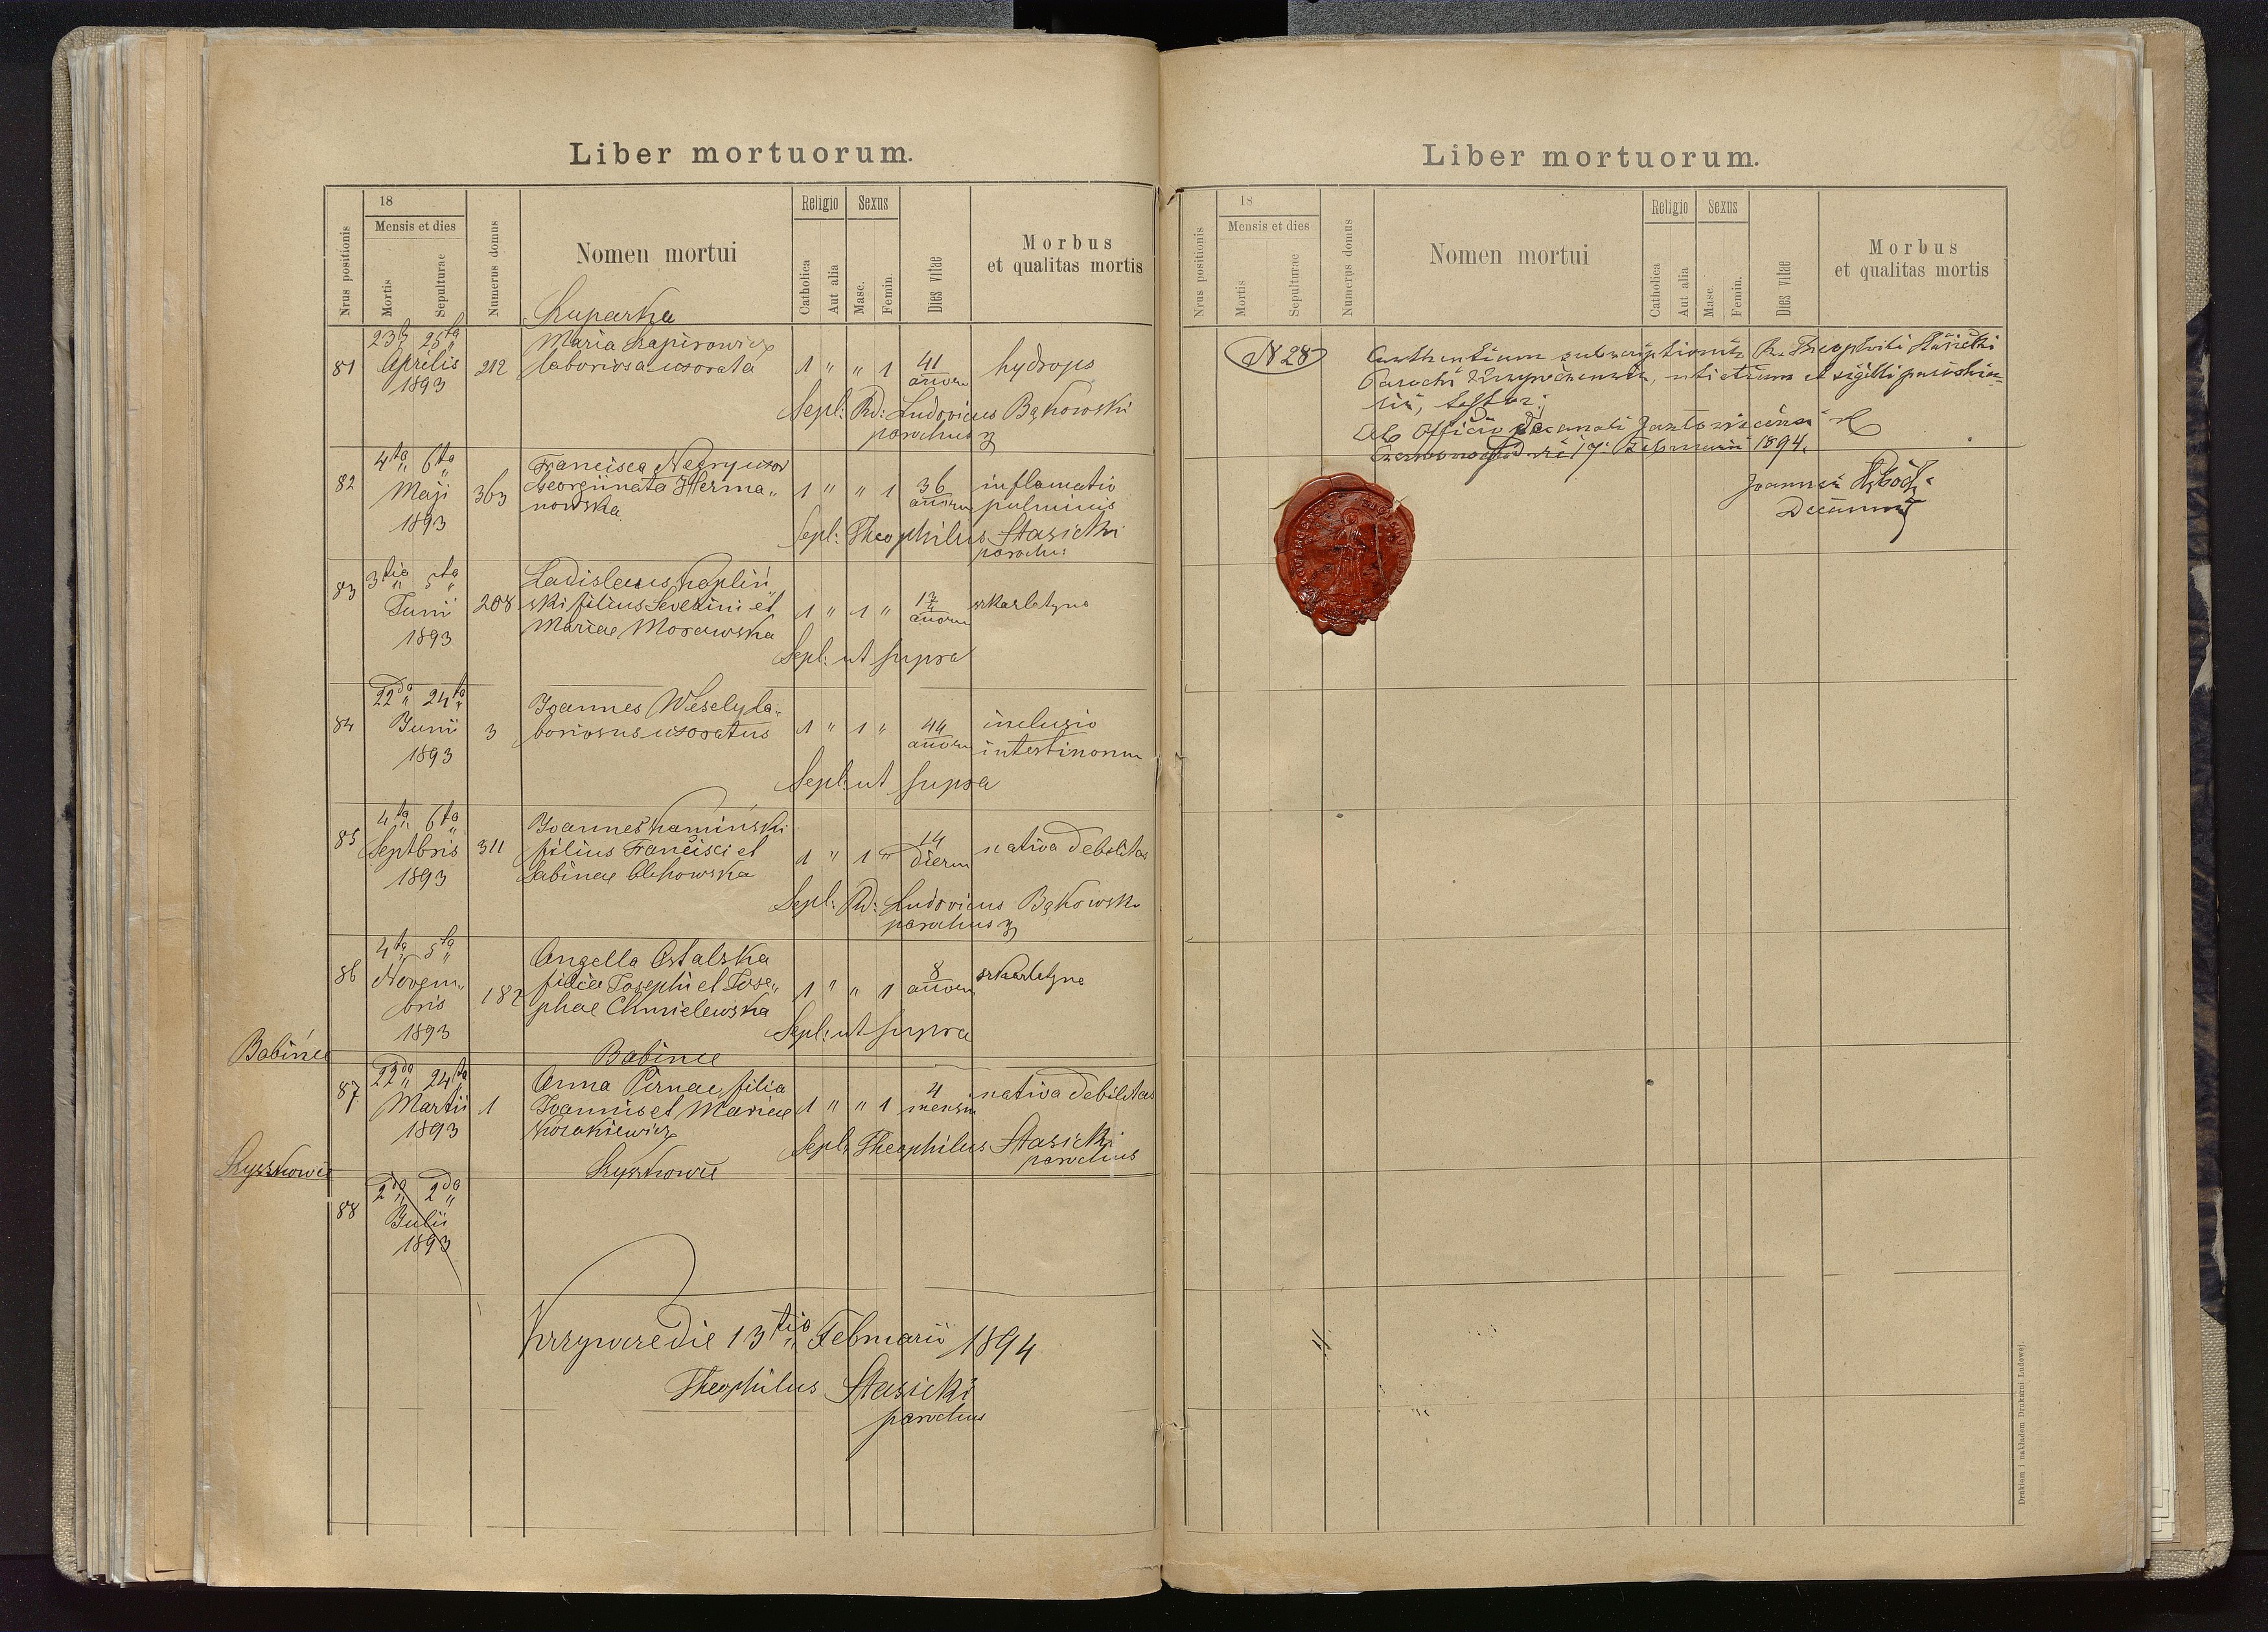 Liber mortuorum.
Nrus positionis
18
Mensis et dies
Mortis
Sepulturae
Numerus domus
Nomen mortui
Religio
Catholica
Aut alia
Sexus
Masc.
Femin.
Dies vitae
Morbus
et qualitas mortis
Skuparka
81
23ta 25ta
Aprilis
1893
212
Maria Kapirowicz
laboriosa uxorata
1 " " 1
41
annorum
hydrops
Sepl: Rd: Ludovicus Bąkowski
parochus
82
4ta 6ta
Maji
1893
363
Francisca Nedry uxor
Georgii nata Herma„
nowska
1 " " 1
36
annorum
inflamatio
pulminis
Sepl: Theophilus Stasicki
parochus
83
3tia 5ta
Junii
1893
208
Ladislaus Kapliń„
ski filius Severini et
Mariae Morawska
1 " 1 "
annorum
szkarlatyna
Sepl: ut supra
84
22da 24ta
Junii
1893
3
Joannes Wesely la„
boriosus uxoratus
1 " 1 "
44
annorum
inclusio
intestinorum
Sepl: ut supra
85
4ta 6ta
Septbris
1893
311
Joannes Kamiński
filius Francisci et
Sabinae Olchowska
1 " 1 "
14
dierum
nativa debilitas
Sepl: Rd: Ludovicus Bąkowski
parochus
86
4ta 5ta
Novem„
bris
1893
182
Angella Ostalska
filia Josephi et Jose„
phae Chmielewska
1 " " 1
8
annorum
szkarlatyna
Sepl: ut supra
Babińce
Babince
87
22da 24ta
Martii
1893
1
Anna Pirnae filia
Joannis et Mariae
Kozakiewicz
1 " " 1
4
mensium
nativa debilitas
Sepl: Theophilus Stasicki
parochus
Szyszkowce
Szyszkowce
88
2da 2da
Julii
1893
Krzywcze die 13tia Februarii 1894
Theophilus Stasicki
parochus
Liber mortuorum.
Nrus positionis
18
Mensis et dies
Mortis
Sepulturae
Numerus domus
Nomen mortui
Religio
Catholica
Aut alia
Sexus
Masc.
Femin.
Dies vitae
Morbus
et qualitas mortis
N 28
subscriptionis Rr. Theophili Stasicki
Parochi Krzywcensis, uti etiam et sigilli parochia„
lis, testor.
Ab Officio Decanali
17. Februarii 1894.
Joannes
Decanus
Drukiem i nakładem Drukarni Ludowej